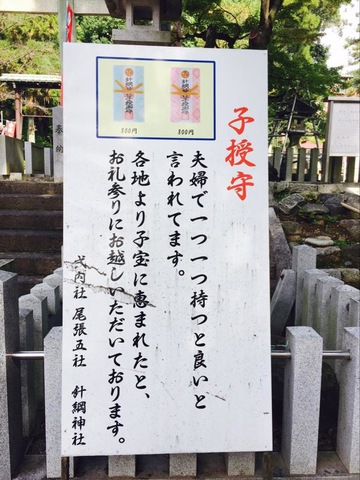 子授守
夫婦で一つ一つ持つと良いと
言われてます。
各地より子宝に恵まれたと、
お礼参りにお越しいただいております。
式内社 尾張五社 針綱神社
800円
800円
奉納